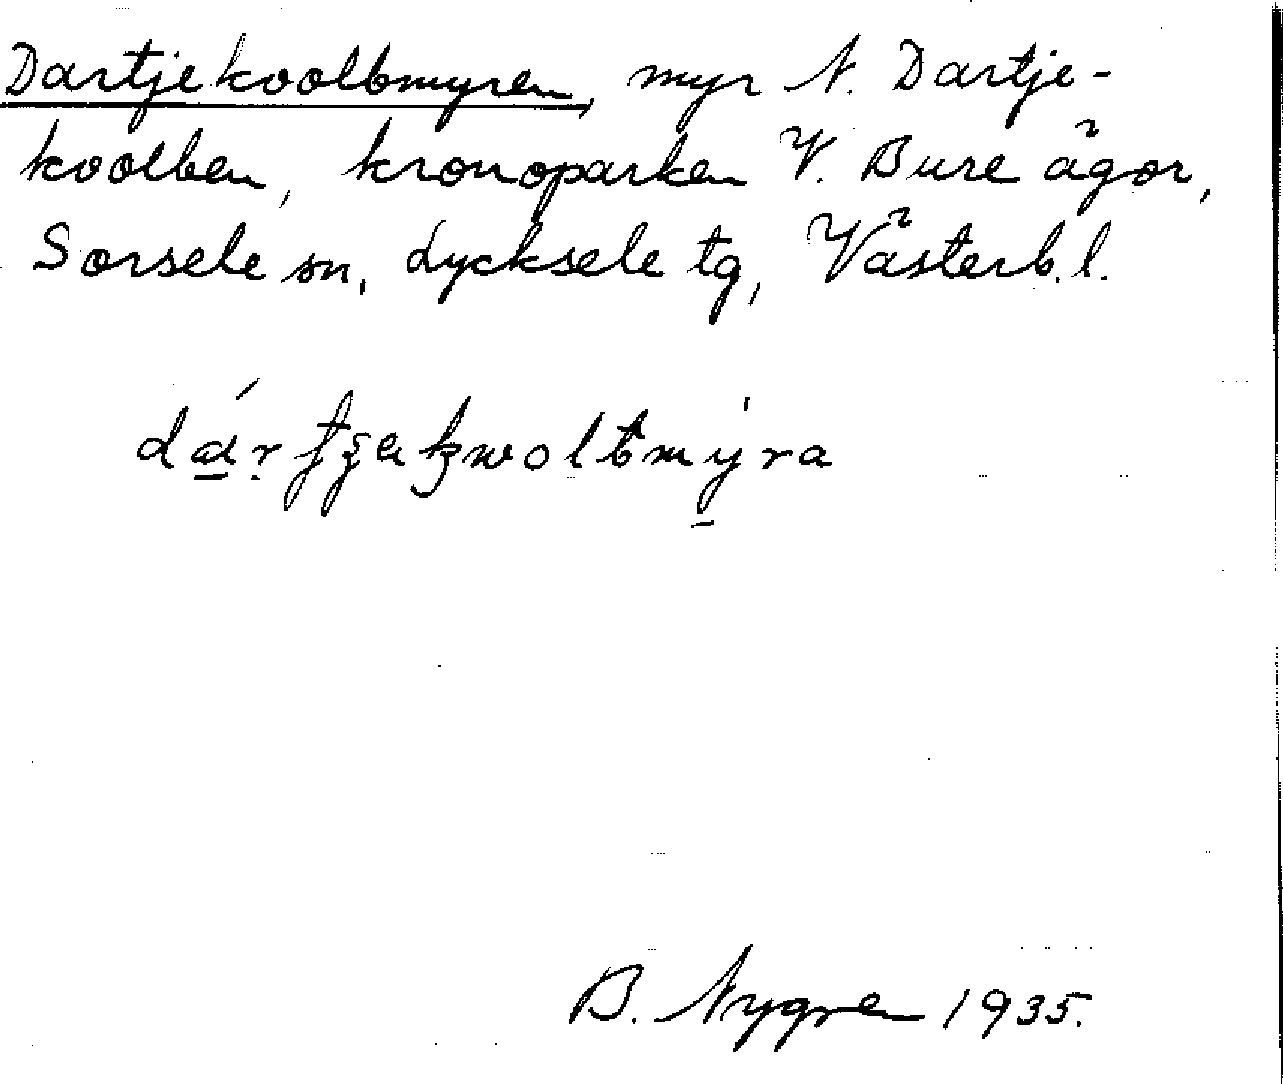 Dartjekvolbmyren, myr N. Dartje-
kvolben, kronoparken V. Bure ägor,
Sorsele sn, Lycksele tg, Västerb. l.
B. Nygren 1935.